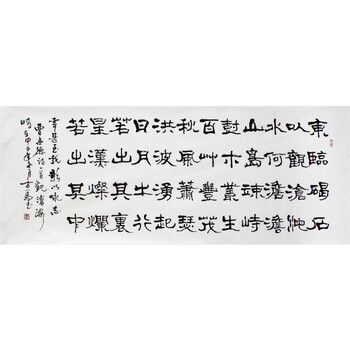 東臨碣石
以觀滄海
水何澹澹
山島竦峙
樹木叢生
百艸豐茂
秋風蕭瑟
洪波湧起
日月之行
若出其裏
星漢燦爛
若出其中
幸甚至哉歌以詠志
曹孟德詩一首觀滄海